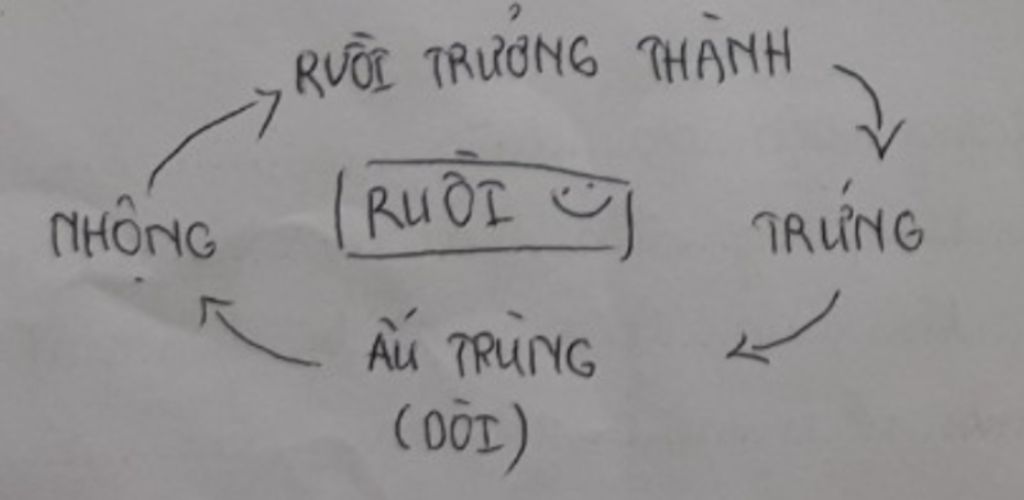 RUỒI TRƯỞNG THÀNH
NHỘNG
RUỒI
TRỨNG
ẤU TRÙNG
(DÒI)